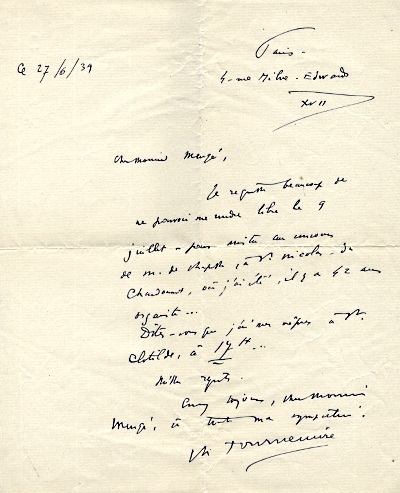 Paris.
Ce 27/6/39
4. rue Milne-Edwards
XVII
Cher monsieur Mengé,
Je regrette beaucoup de
ne pouvoir me rendre libre le 9
juillet - pour au concours
de m. de à St nicolas-du
Chardonnet, où j'ai été, il y a 42 ans
organiste...
Dites-vous que j'ai mes vêpres à St.
Clotilde, à 17 H...
Mille regrets.
toujours, cher monsieur
Mengé, à toute ma sympathie.
Ch Tournemire